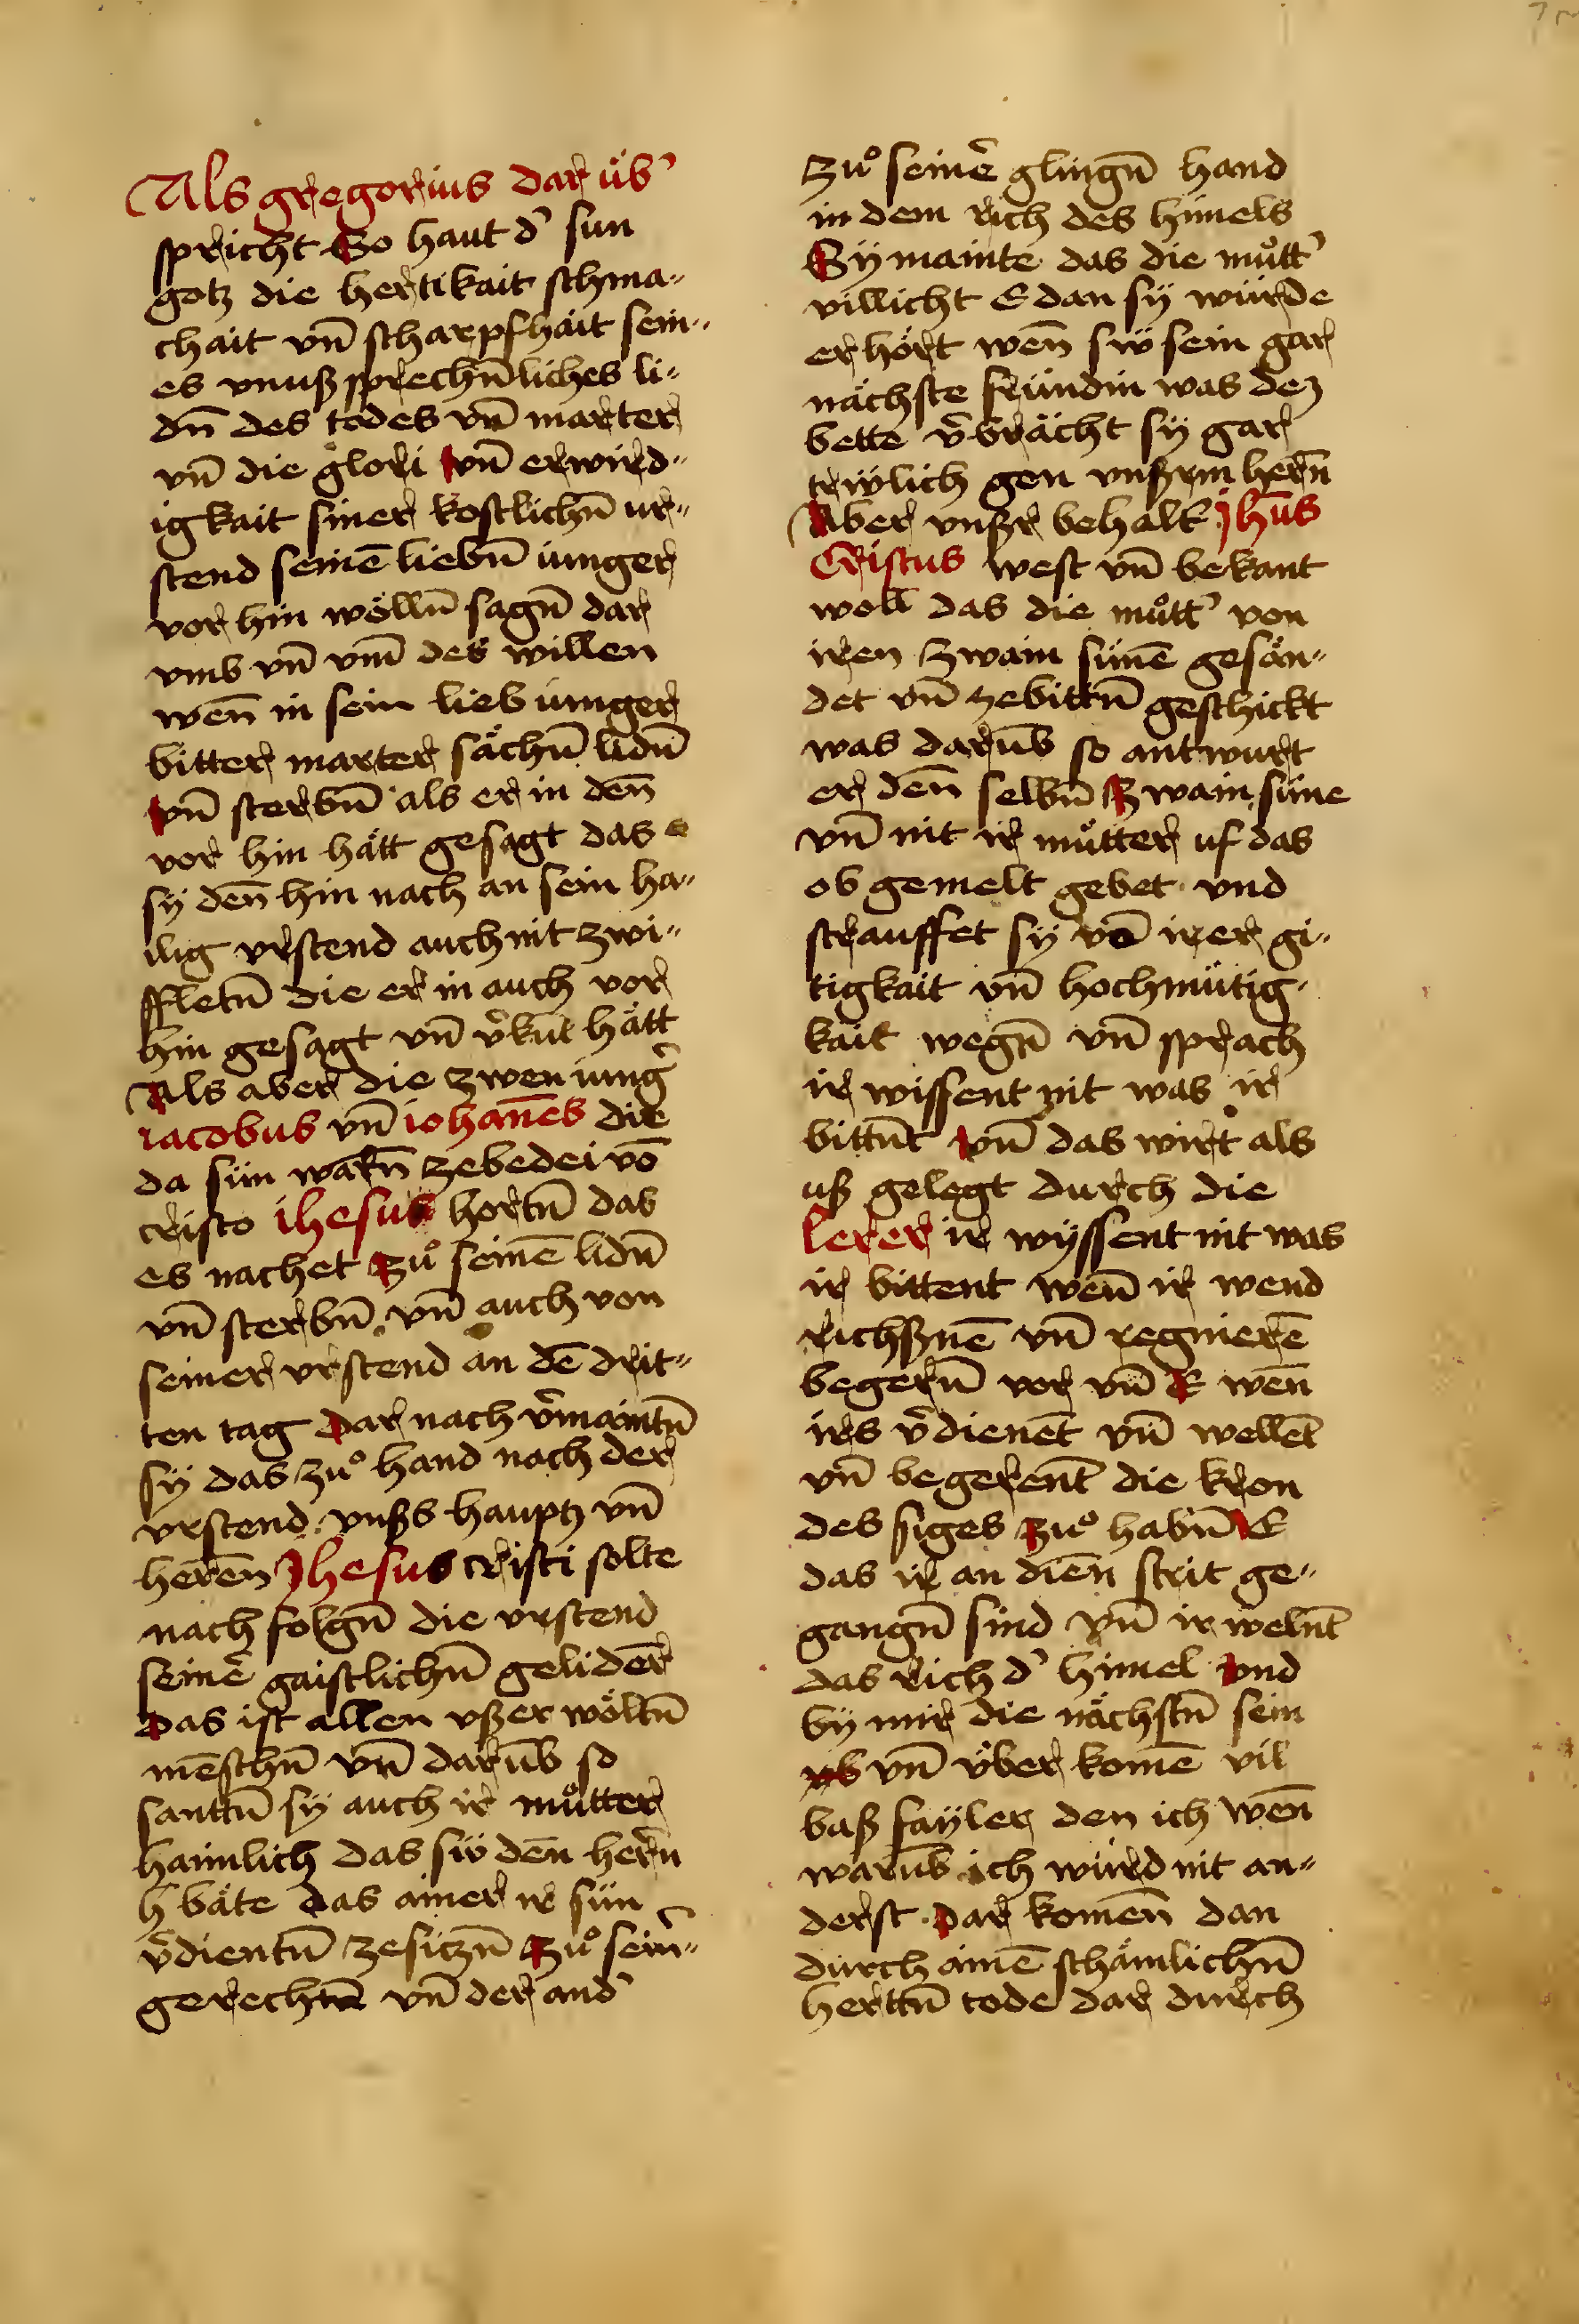 Als gregorius dar üb᾽
spricht So haut d᾽ sun
gotz die hertikait schma„
chait vn̄ scharpfhait sein„
es vnußsprechn̄liches li„
dn̄ des todes vn̄ marter
vn̄ die glori vn̄ erwird„
igkait siner kostlichn̄ ur„
stend seinē liebn̄ iunger
vor hin wölln̄ sagn̄ dar
vmb vn̄ vm̄ des willen
wen̄ in sein lieb iunger
bitter marter sächn̄ lidn̄
vn̄ sterbn̄ als er in den̄
vor hin hätt gesagt das
sÿ den̄ hin nach an sein ha„
ilig vrstend auch nit zwi„
ffletn̄ die er in auch vor
hin gesagt vn̄ v᾽kūt hätt
Als aber die zwen iung᾽
iacobus vn̄ iohan̄es die
da sün warn̄ zebedei vō
cristo ihesus hortn̄ das
es nachet Zuͦ seinē lidn̄
vn̄ sterbn̄ vn̄ auch von
seiner vrstend an dē drit„
ten tag Dar nach v᾽maintn̄
sÿ das zuͦ hand nach der
vrstend vnßs hauptz vn̄
herēn Jhesus cristi solte
nach folgn̄ die vrstend
sein᾽e gaistlichn̄ gelider̄
Das ist allen vßer wöltn̄
mēschn̄ vn̄ darūb so
santtn̄ sÿ auch ir muͦtter
haimlich das siv den̄ her̄n
h bäte das ainer ir sün
v᾽dientn̄ zesiczn̄ Zuͦ sein᾽„
gerechtn̄ vn̄ der and᾽
zuͦ sein᾽e glingn̄ hand
in dem rich des himels
Sÿ mainte das die muͦtt᾽
villicht E dan sÿ würde
erhört wen̄ siv sein gar
nächste fründin was dez
bette v᾽brächt sÿ gar
trẅlich gen vnßrm her̄n
Aber vnßr behalt Jhūs
Cristus west vn̄ bekant
woll das die muͦtt᾽ von
iren zwain sünē gesän„
det vn̄ zebittn̄ geschickt
was darūb so antwurt
er den̄ selbn̄ Zwain süne
vn̄ nit ir muͦtter uf das
ob gemelt gebet vnd
strauffet sÿ vō irer gi„
tigkait vn̄ hochmütig„
kait wegn̄ vn̄ sprach
ir wissent nit was ir
bittn̄t vn̄ das wirt als
uß gelegt durch die
lerer ir wÿssent nit was
ir bittent wen̄ ir wend
richßnē vn̄ regnierē
begern̄ vor vn̄ E wen̄
irs v᾽dienēt vn̄ wellēt
vn̄ begerent̄ die kron
des siges Zuͦ habn̄ E
das ir an dien̄ strit ge„
gangn̄ sind vn̄ ir weln̄t
das rich d᾽ himel vnd
bÿ mir die nächstn̄ sein
vn̄ über komē vil
baß fayler den ich wen̄
warūb ich würd nit an„
derst Dar komen̄ dan
durch ainē schämlichn̄
herttn̄ tode dar durch